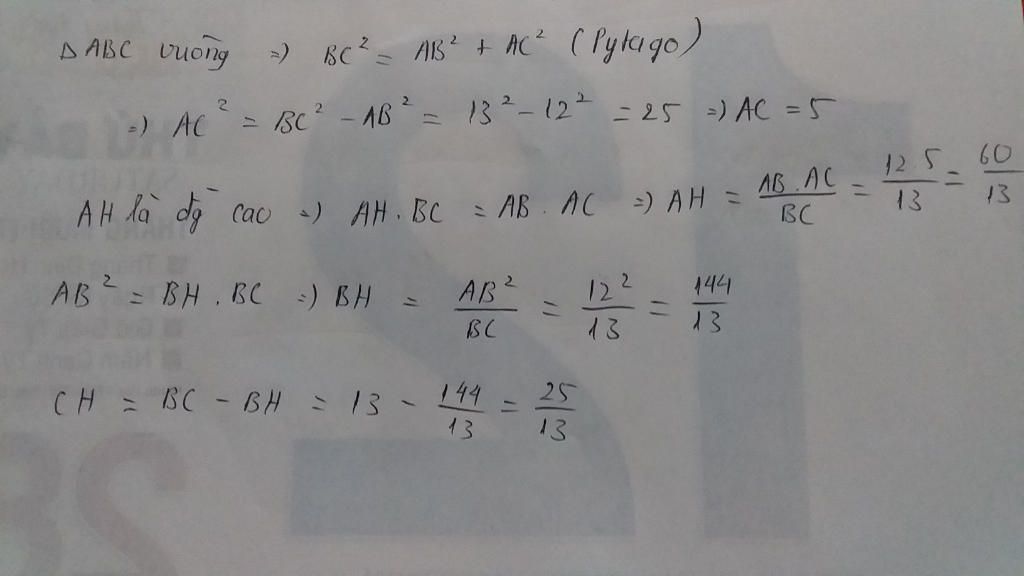 Δ ABC vuông => BC² = AB² + AC² (Pytago)
=> AC² = BC² - AB² = 13² - 12² = 25 => AC = 5
AH là đg cao => AH . BC = AB . AC => AH = AB . AC / BC = 12 5 / 13 = 60 / 13
AB² = BH . BC => BH = AB² / BC = 12² / 13 = 144 / 13
CH = BC - BH = 13 - 144 / 13 = 25 / 13